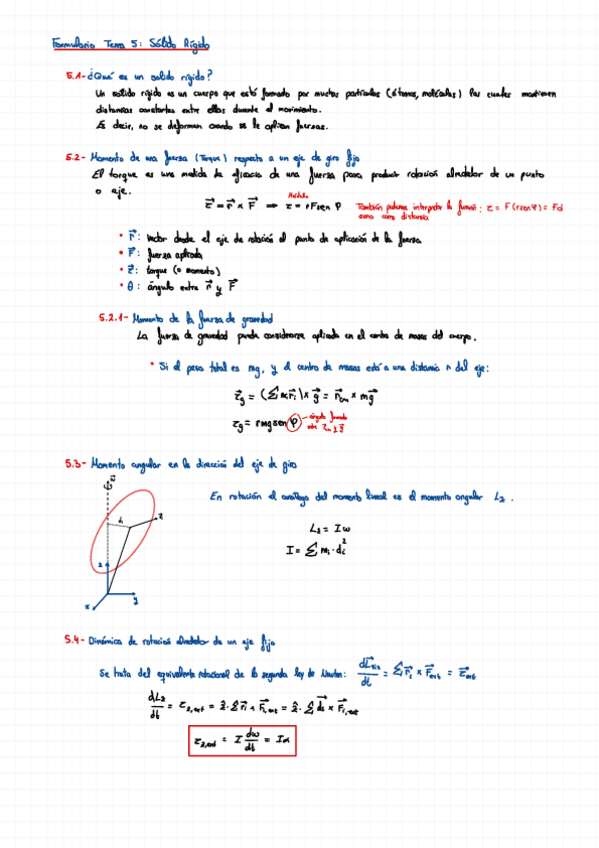 Formulario Tema 5: Sólido Rígido
5.1- ¿Qué es un solido rígido?
Un solido rígido es un cuerpo que está formado por muchas partículas (átomos, moléculas) las cuales mantienen
distancias constantes entre ellas durante el movimiento.
Es decir, no se deforman cuando se le aplican fuerzas.
5.2- Momento de una fuerza (Torque) respecto a un eje de giro fijo
El torque es una medida de eficacia de una fuerza para producir rotación alrededor de un punto
o eje.
Módulo
τ⃗ = r⃗ × F⃗ ⟹ τ = rFsen φ
También podemos interpretar la fórmula: τ = F(rsenφ) = Fd
como una distancia
• r⃗: vector desde el eje de rotación al punto de aplicación de la fuerza
• F⃗: fuerza aplicada
• τ⃗: torque (o momento)
• θ: ángulo entre r⃗ y F⃗
5.2.1- Momento de la fuerza de gravedad
La fuerza de gravedad puede considerarse aplicada en el centro de masas del cuerpo.
• Si el peso total es mg, y el centro de masas está a una distancia r del eje:
τ⃗g = (Σ mᵢr⃗ᵢ) × g⃗ = r⃗cm × mg⃗
τg = rmgsen φ
ángulo formado
entre r⃗cm y g⃗
5.3- Momento angular en la dirección del eje de giro
ω⃗
En rotación el análogo del momento lineal es el momento angular Lz.
z
x
y
Lz = Iω
I = Σ mᵢ·dᵢ²
5.4- Dinámica de rotación alrededor de un eje fijo
Se trata del equivalente rotacional de la segunda ley de Newton: dL⃗sis/dt = Σ r⃗ᵢ × F⃗ext = τ⃗ext
dLz/dt = τz,ext = ẑ·Σ r⃗ᵢ × F⃗i,ext = ẑ·Σ d⃗ᵢ × F⃗i,ext
τz,ext = I dω/dt = Iα